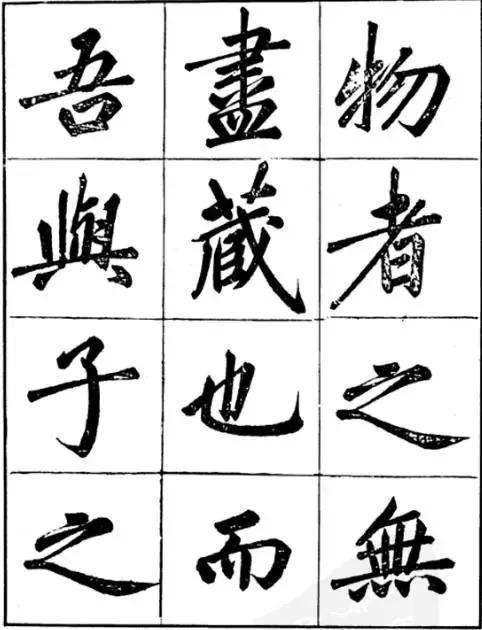 物者之無
盡藏也而
吾與子之